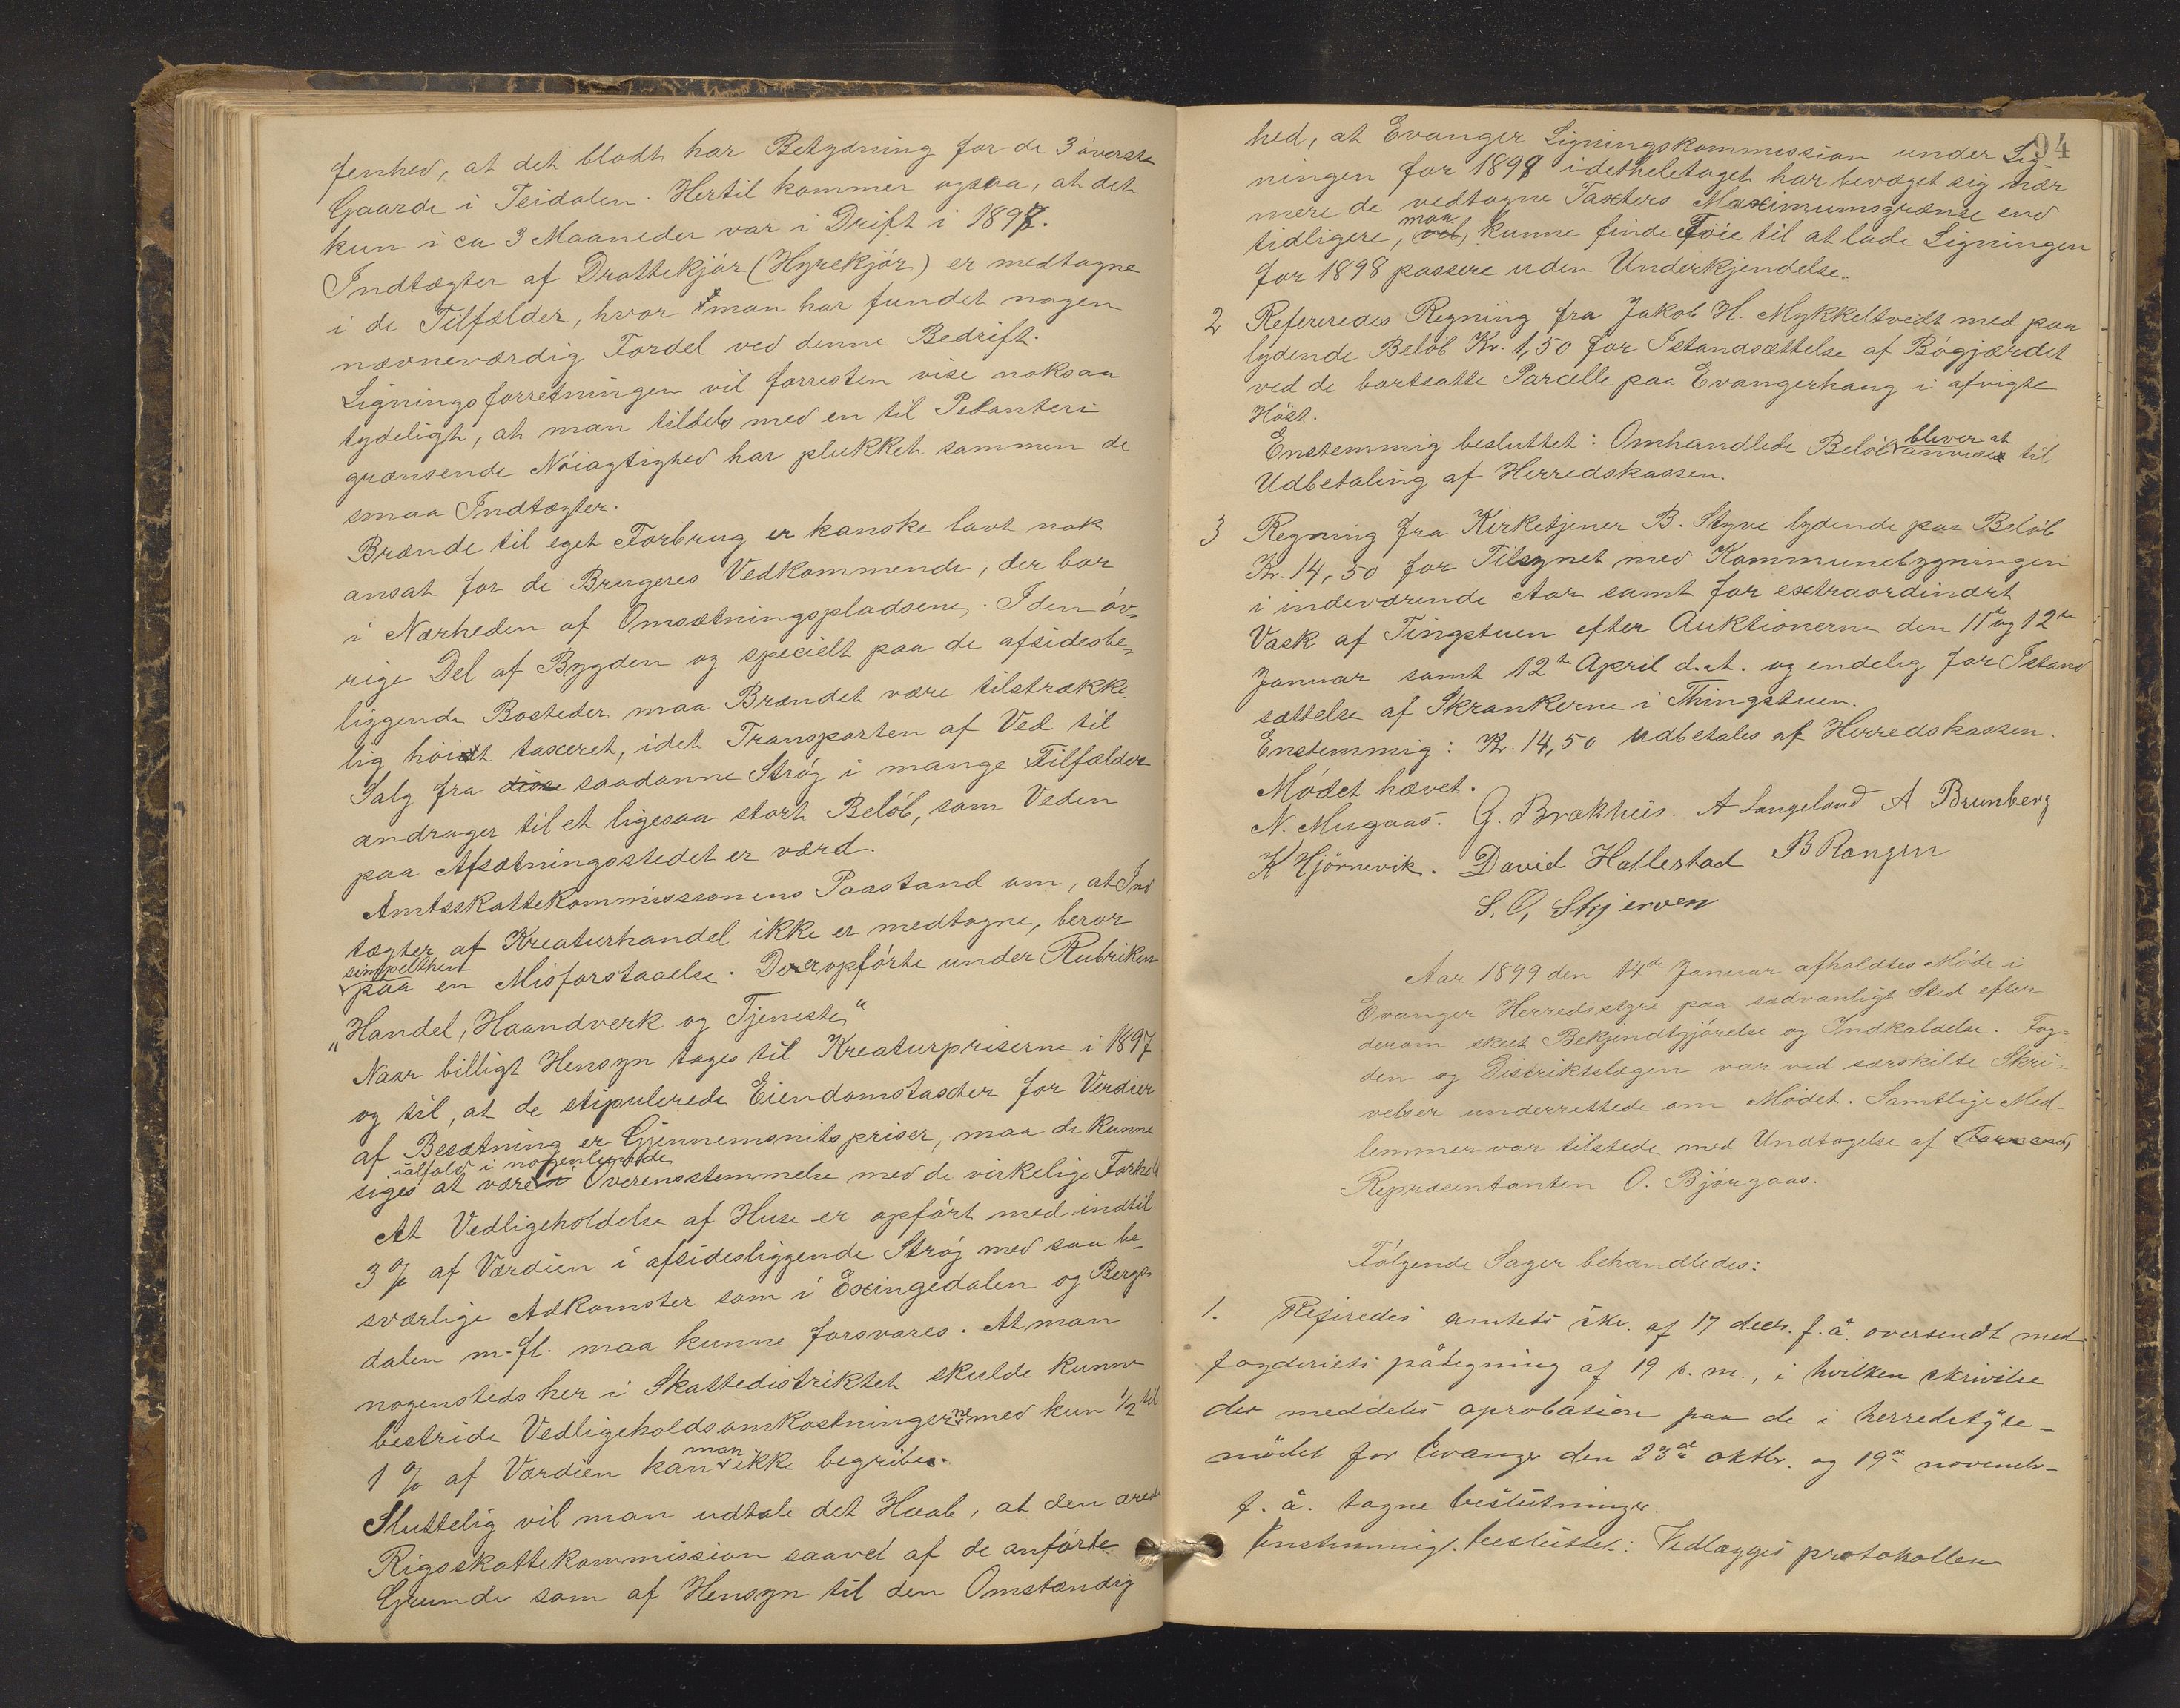 fenhed, at det blodt har Betydning for de 3 øverste
Gaarde i Teidalen. Hertil kommer ogsaa, at det
kun i ca 3 Maaneder var i Drift i 1897.
Indtægter af Drattekjør (Hyrekjør) er medtagne
i de Tilfælder, hvor man har fundet nogen
nævneværdig Fordel ved denne Bedrift.
Ligningsforretningen vil forresten vise noksaa
tydeligt, at man tildels med en til Petanteri
grænsende Nøiagtighed har plukket sammen de
smaa Indtægter.
Brænde til eget Forbrug er kanske lavt nok
ansat for de Brugeres Vedkommende, der bor
i Nærheden af Omsætningspladsene. I den øv=
rige Del af Bygden og specielt paa de afsidesbe=
liggende Bosteder maa Brændet være tilstrække
lig høit taxeret, idet Transporten af Ved til
Salg fra disse saadanne Strøg i mange Tilfælder
andrager til et ligesaa stort Beløb, som Veden
paa Afsætningsstedet er værd.
Amtsskattekommissionens Paastand om, at Ind
tægter af Kreaturhandel ikke er medtagne, beror
simpelthen
paa en Misforstaaelse. De er opførte under Rubriken
"Handel, Haandverk og Tjeneste"
Naar billigt Hensyn tages til Kreaturpriserne i 1897
og til, at de stipulerede Eiendomstaxter for Verdier
af Besætning er Gjennemsnitspriser, maa de kunne
ialfald i nogenlunde
siges at være i Overensstemmelse med de virkelige Forhold
At Vedligeholdelse af Huse er opført med indtil
3 % af Værdien i afsidesliggende Strøg med saa be-
sværlige Adkomster som i Exingedalen og Berge
dalen m.fl. maa kunne forsvares. At man
nogensteds her i Skattedistriktet skulde kunne
bestride Vedligeholdsomkostningerne med kun 1/2 til
man
1 % af Værdien kan ikke begribes.
Sluttelig vil man udtale det Haab, at den ærede
Rigsskattekommission saavel af de anførte
Grunde som af Hensyn til den Omstændig
94
hed, at Evanger Ligningskommission under Lig
ningen for 1898 idetheletaget har bevæget sig nær
mere de vedtagne Taxters Maximumsgrænse end
maa
tidligere, vil, kunne finde Føie til at lade Ligningen
for 1898 passere uden Underkjendelse.
2 Refereredes Regning fra Jakob H. Mykkeltvedt med paa
lydende Beløb Kr. 1,50 for Istandsættelse af Bøgjærdet
ved de bortsatte Parcelle paa Evangerhaug i afvigte
Høst.
Enstemmig besluttet: Omhandlede Beløb bliver at anvise til
Udbetaling af Herredskassen.
3 Regning fra Kirketjener B. Styve lydende paa Beløb
Kr. 14,50 for Tilsynet med Kommunebygningen
i indeværende Aar samt for extraordinært
Vask af Tingstuen efter Auktionerne den 11te og 12te
Januar samt 12te April d.A. og endelig for Istand
sættelse af Skrankerne i Thingstuen.
Enstemmig: Kr. 14,50 udbetales af Herredskassen.
Mødet hævet.
N. Mugaas. G. Brækhus. A Langeland A Brunberg
K Hjørnevik. David Hallestad B Rongen
S. O. Skjerven
Aar 1899 den 14de Januar afholdtes Møde i
Evanger Herredsstyre paa sædvanligt Sted efter
derom skeet Bekjendtgjørelse og Indkaldelse. Fog=
den og Distriktslægen var ved særskilte Skri=
velser underrettede om Mødet. Samtlige Med-
lemmer var tilstede med Undtagelse af
Repræsentanten O. Bjørgaas.
Følgende Sager behandledes:
1. Referedes amtets skr. af 17 decbr. f. å. oversendt med
fogderiets påtegning af 19 s. m., i hvilken skrivelse
der meddeles aprobasion paa de i herredstyre-
mødet for Evanger den 23de oktbr. og 19de novembr-
f. å. tagne beslutninger.
Enstemmig besluttet: Vedlægges protokollen